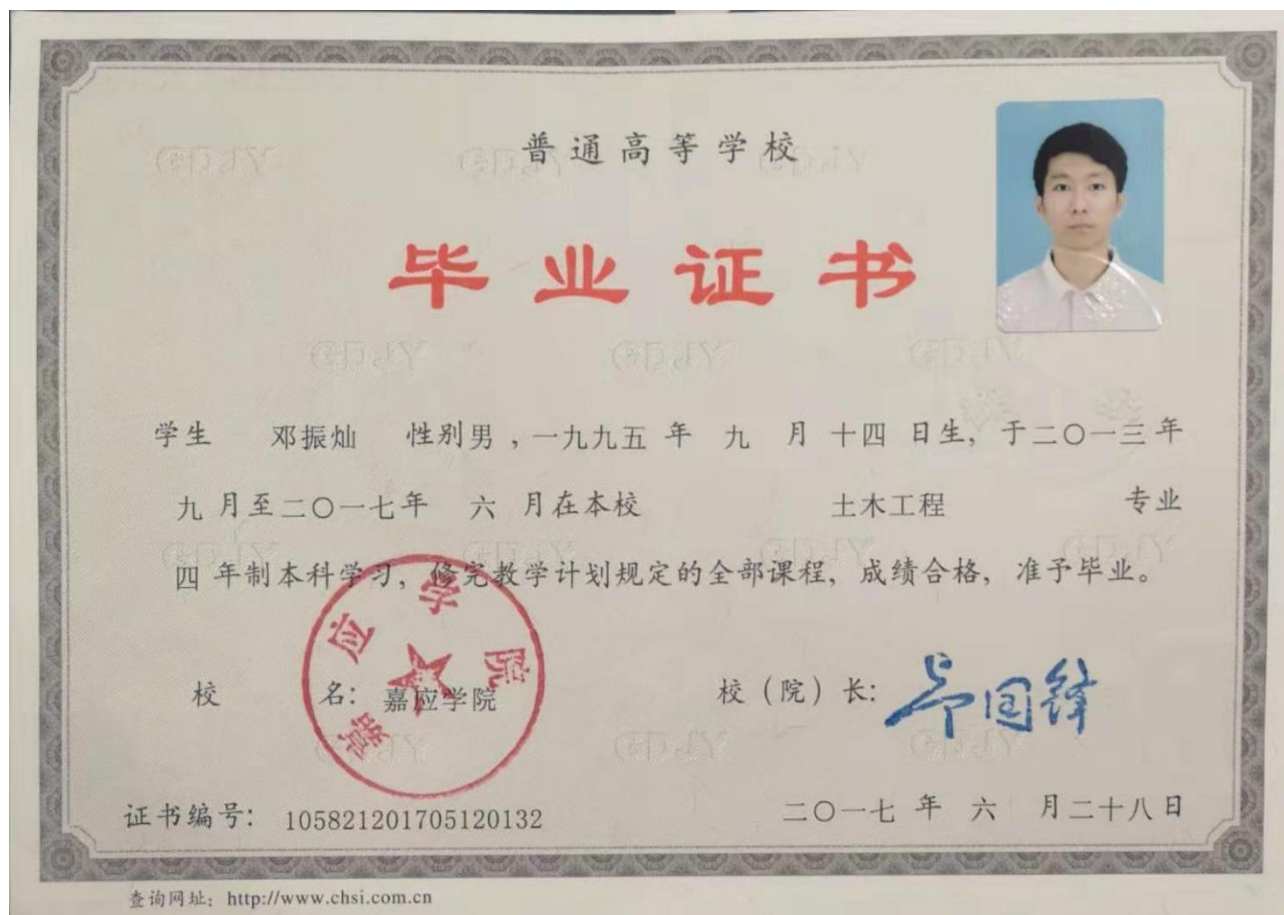 普通高等学校
毕业证书
学生 邓振灿 性别男，一九九五年 九 月 十四 日生，于二〇一三年
九月至二〇一七年 六 月在本校 土木工程 专业
四 年制本科学习，修完教学计划规定的全部课程，成绩合格，准予毕业。
校 名：嘉应学院
校（院）长：
嘉应学院
证书编号：105821201705120132
二〇一七 年 六 月二十八日
查询网址：http://www.chsi.com.cn